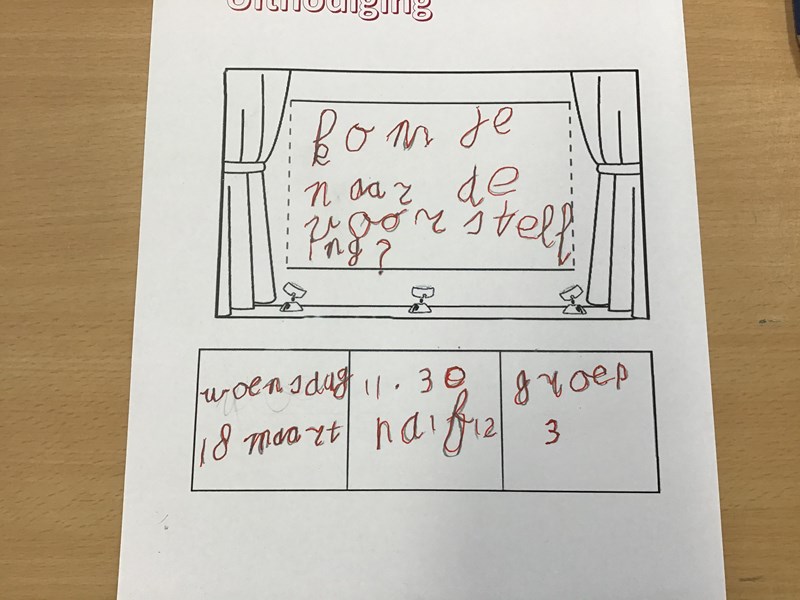 Uitnodiging
kom je
naar de
voorstell
ing?
woensdag
18 maart
11.30
half 12
groep
3